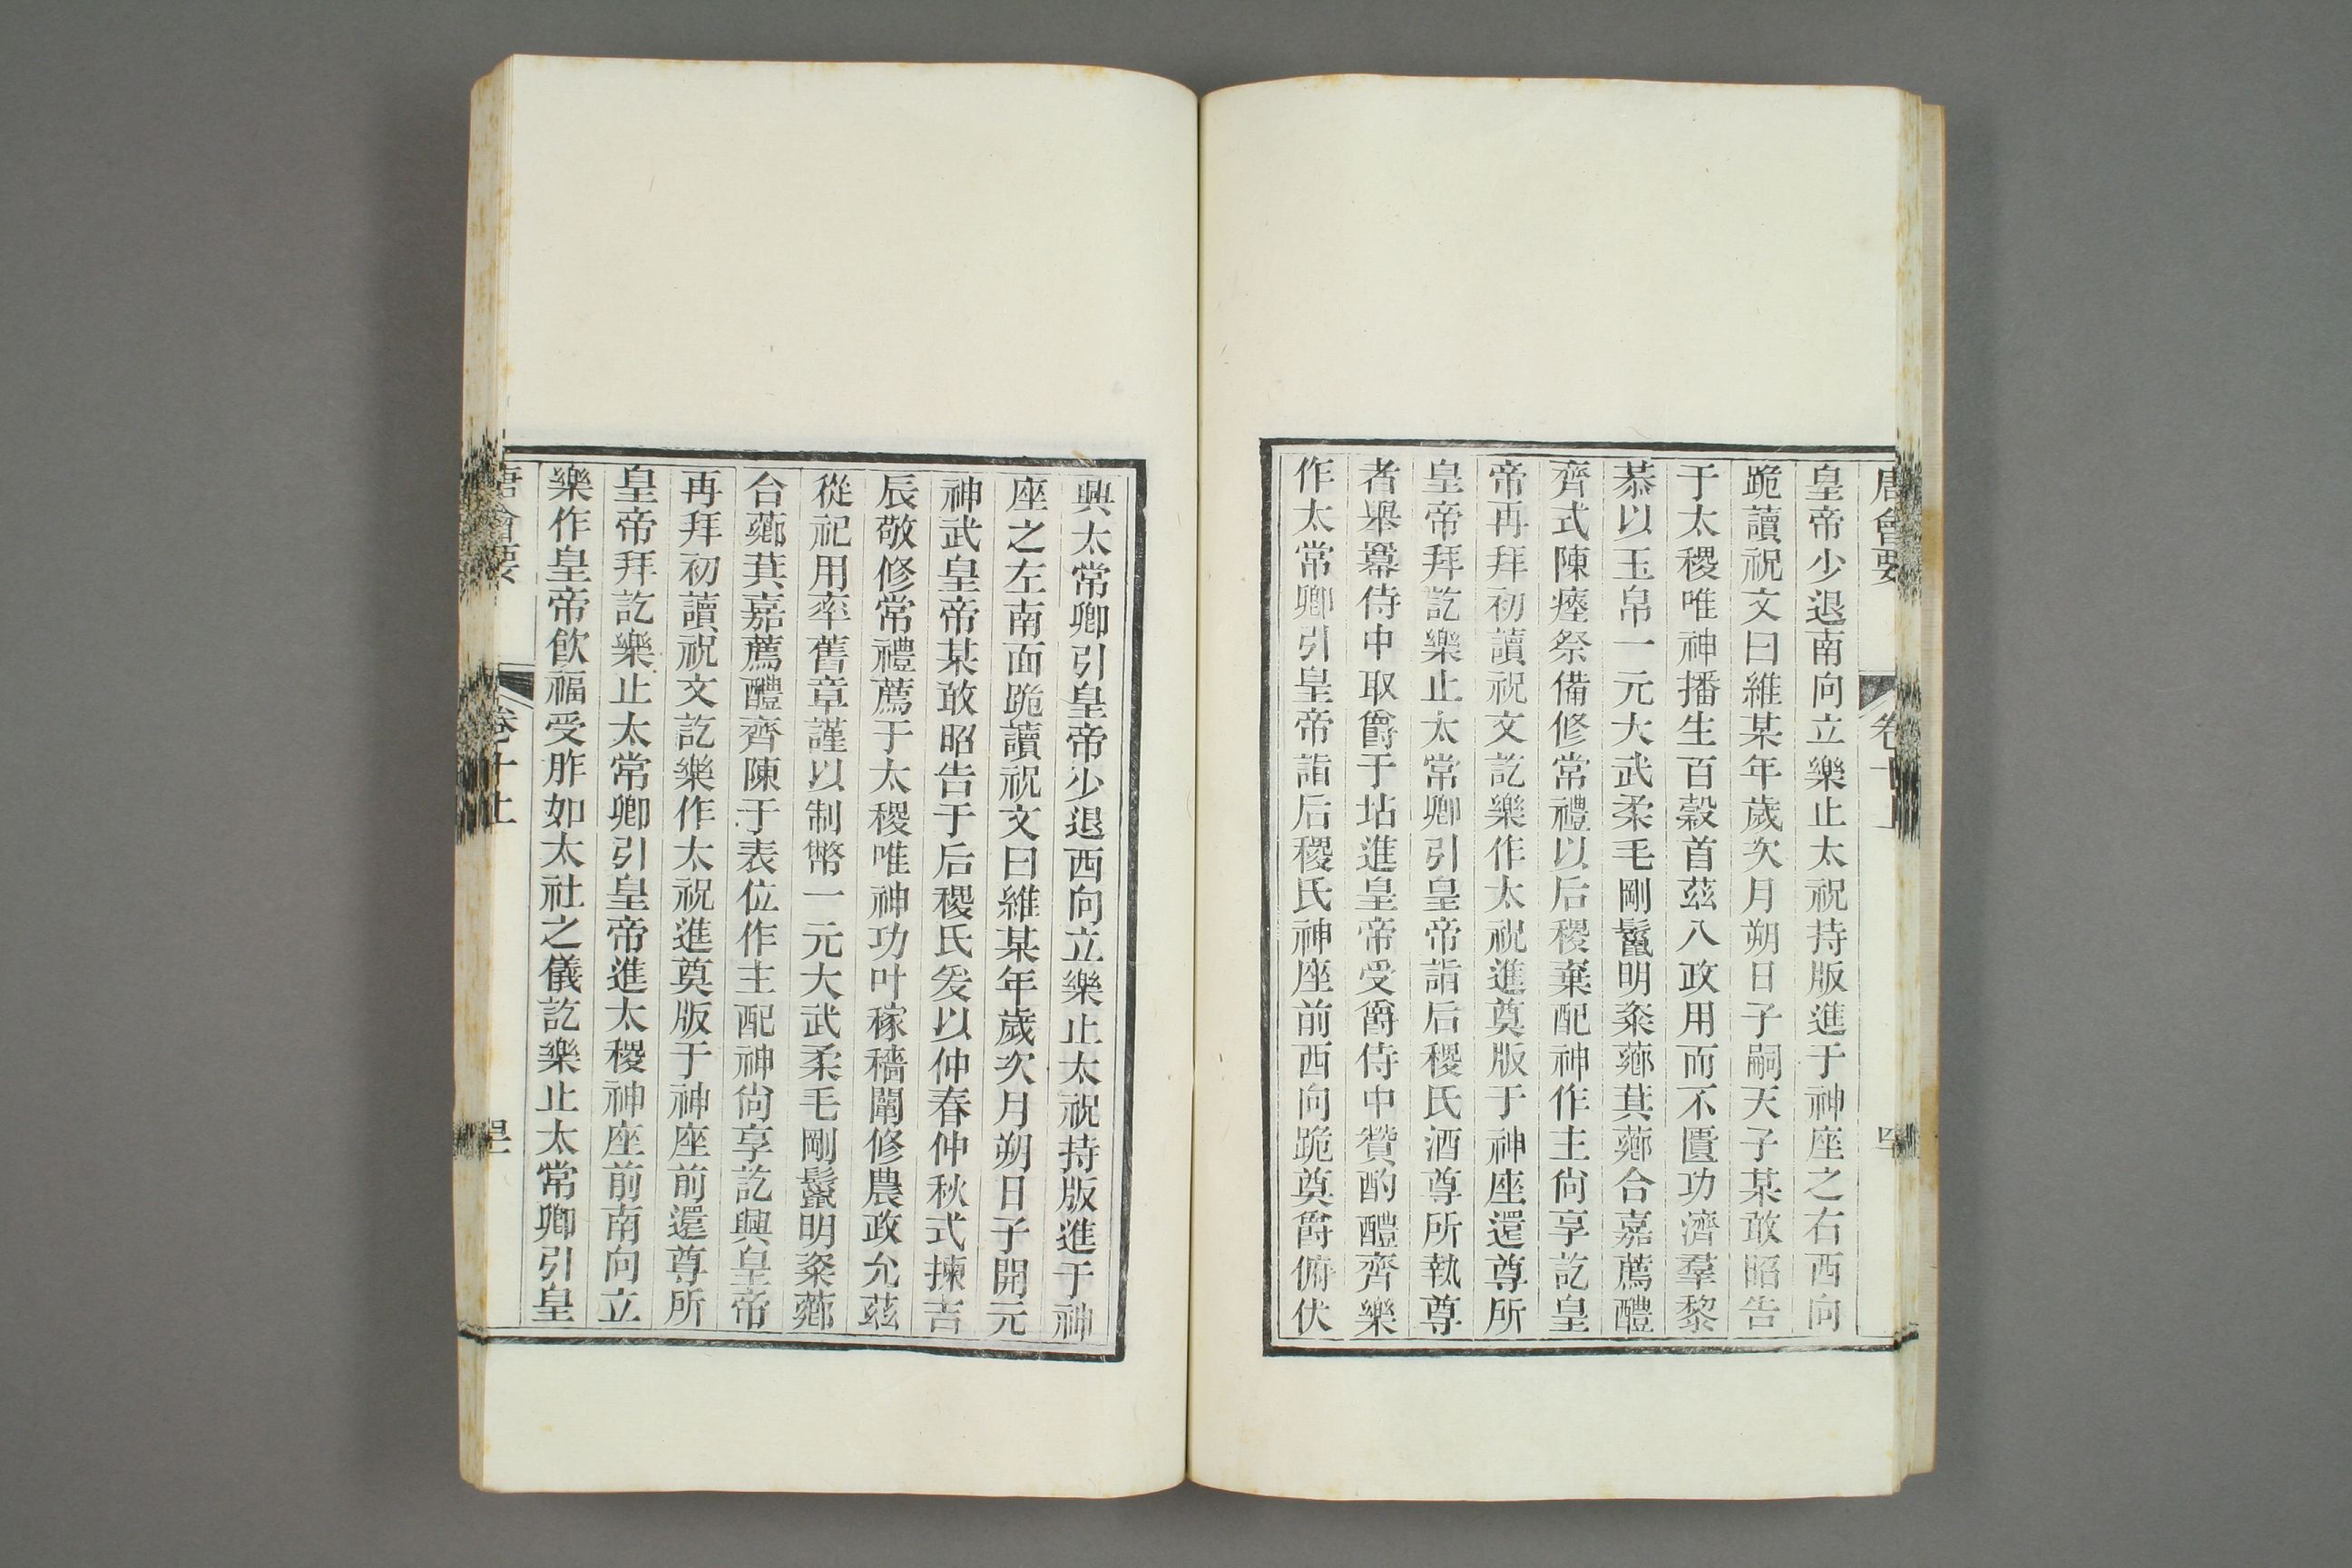 唐會要 卷十上
皇帝少退南向立樂止太祝持版進于神座之右西向
跪讀祝文曰維某年歲次月朔日子嗣天子某敢昭告
于太稷唯神播生百穀首茲八政用而不匱功濟羣黎
恭以玉帛一元大武柔毛剛鬛明粢薌萁薌合嘉薦醴
齊式陳瘞祭備修常禮以后稷棄配神作主尙享訖皇
帝再拜初讀祝文訖樂作太祝進奠版于神座還尊所
皇帝拜訖樂止太常卿引皇帝詣后稷氏酒尊所執尊
者舉羃侍中取爵于坫進皇帝受爵侍中贊酌醴齊樂
作太常卿引皇帝詣后稷氏神座前西向跪奠爵俯伏
興太常卿引皇帝少退西向立樂止太祝持版進于神
座之左南面跪讀祝文曰維某年歲次月朔日子開元
神武皇帝某敢昭告于后稷氏爰以仲春仲秋式揀吉
辰敬修常禮薦于太稷唯神功叶稼穡闡修農政允茲
從祀用率舊章謹以制幣一元大武柔毛剛鬛明粢薌
合薌萁嘉薦醴齊陳于表位作主配神尙享訖興皇帝
再拜初讀祝文訖樂作太祝進奠版于神座前還尊所
皇帝拜訖樂止太常卿引皇帝進太稷神座前南向立
樂作皇帝飲福受胙如太社之儀訖樂止太常卿引皇
唐會要 卷十上